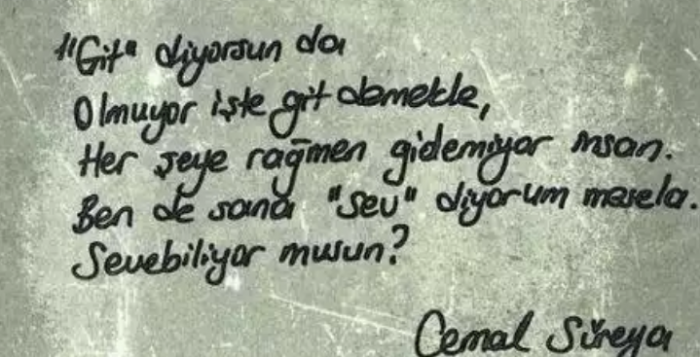 "Git" diyorsun da
Olmuyor işte git demekle,
Her şeye rağmen gidemiyor insan.
Ben de sana "sev" diyorum mesela.
Sevebiliyor musun?
Cemal Süreya